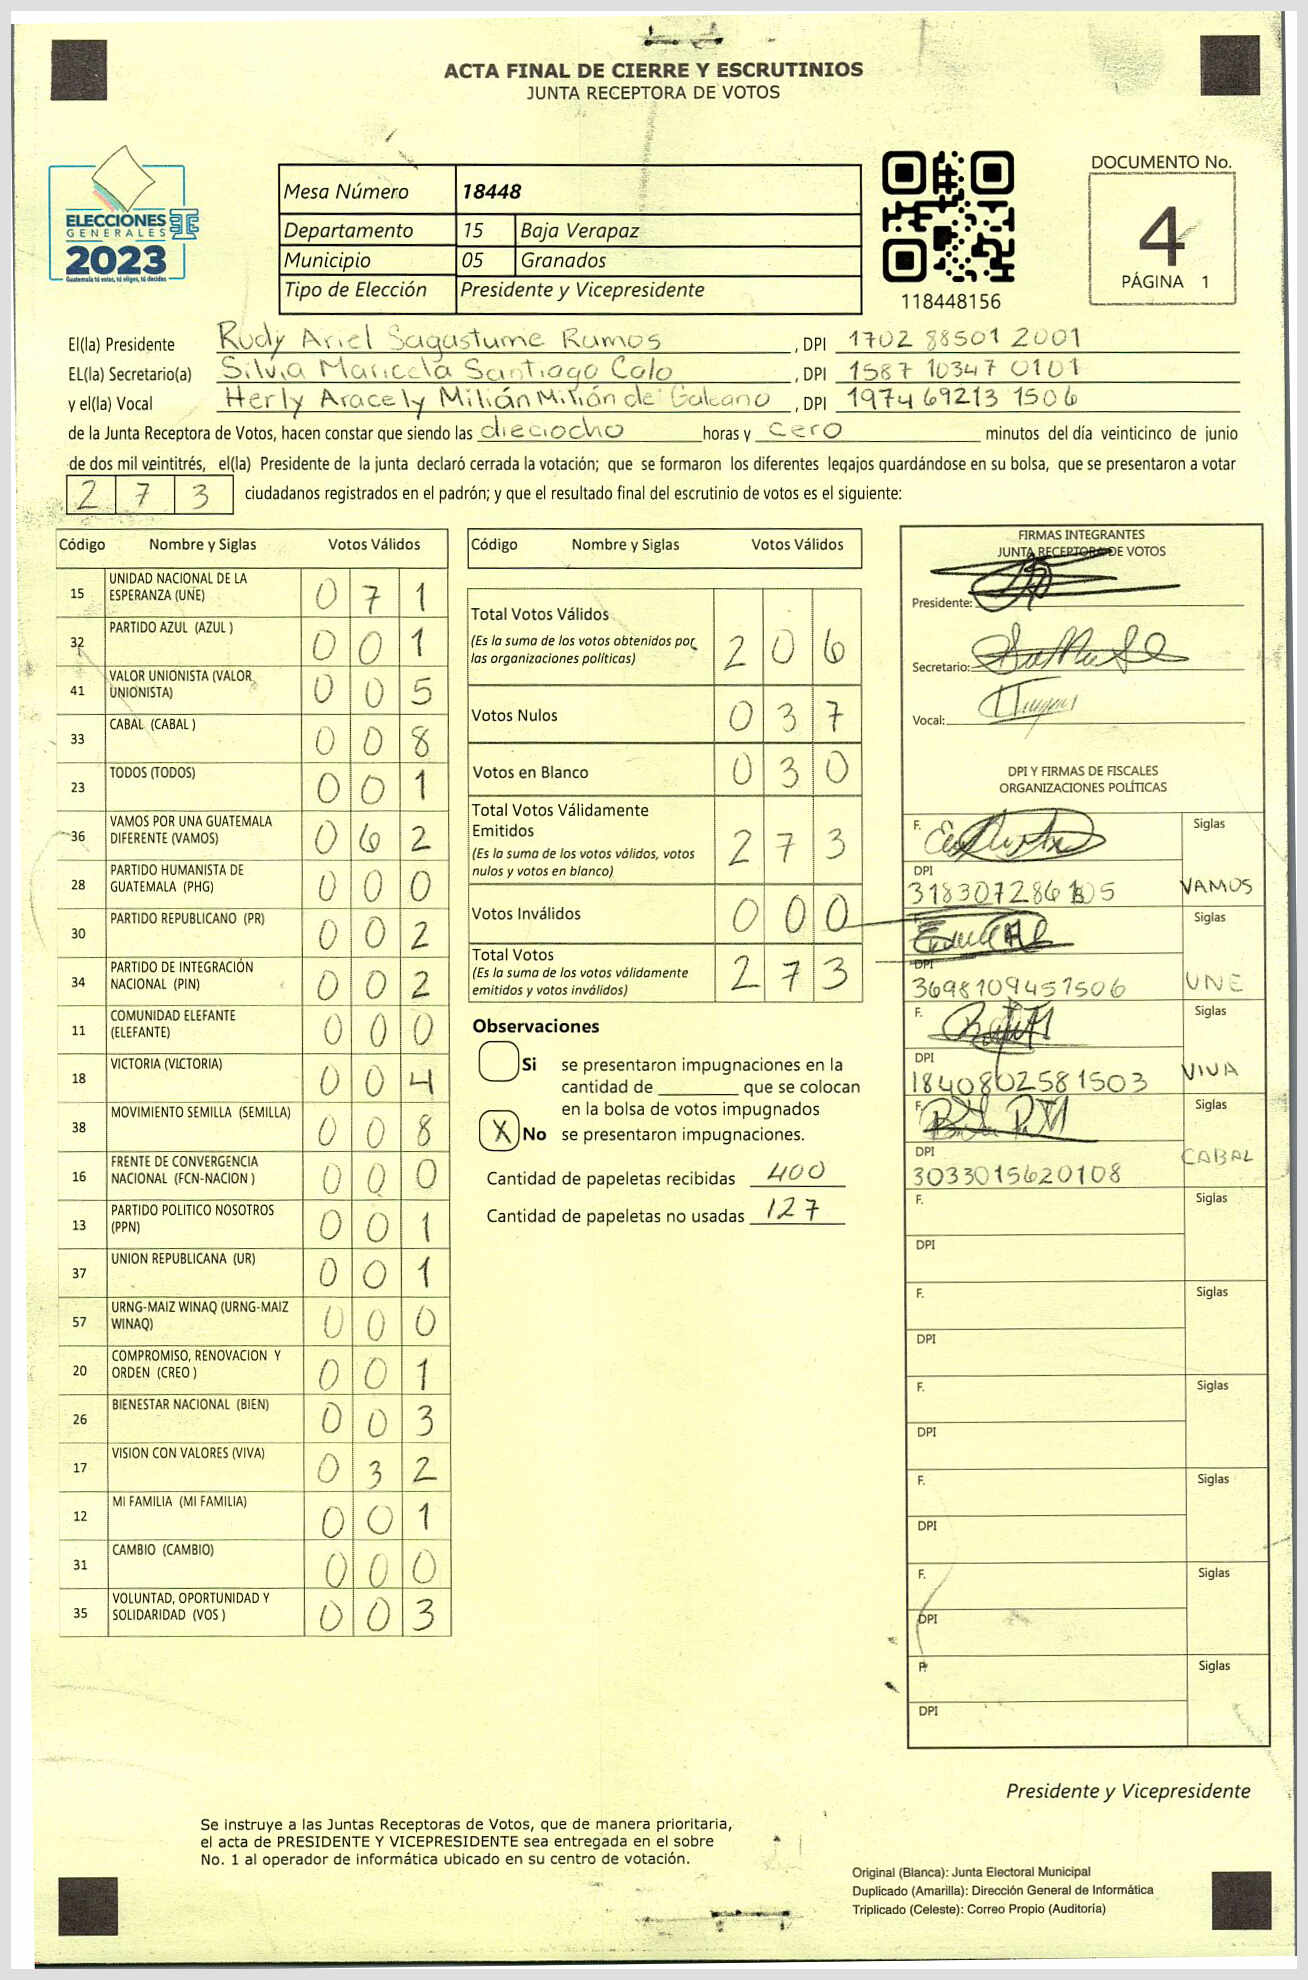 ACTA FINAL DE CIERRE Y ESCRUTINIOS
JUNTA RECEPTORA DE VOTOS
ELECCIONES
GENERALES
2023
Guatemala tú votas, tú eliges, tú decides
Mesa Número 18448
Departamento 15 Baja Verapaz
Municipio 05 Granados
Tipo de Elección Presidente y Vicepresidente
118448156
DOCUMENTO No.
4
PÁGINA 1
El(la) Presidente Rudy Ariel Sagastume Ramos, DPI 1702 88501 2001
EL(la) Secretario(a) Silvia Maricela Santiago Calo, DPI 1587 10347 0101
y el(la) Vocal Herly Aracely Milián Milián de Galeano, DPI 1974 69213 1506
de la Junta Receptora de Votos, hacen constar que siendo las dieciocho horas y cero minutos del día veinticinco de junio
de dos mil veintitrés, el(la) Presidente de la junta declaró cerrada la votación; que se formaron los diferentes legajos guardándose en su bolsa, que se presentaron a votar
273 ciudadanos registrados en el padrón; y que el resultado final del escrutinio de votos es el siguiente:
Código Nombre y Siglas Votos Válidos
15 UNIDAD NACIONAL DE LA ESPERANZA (UNE) 071
32 PARTIDO AZUL (AZUL ) 001
41 VALOR UNIONISTA (VALOR UNIONISTA) 005
33 CABAL (CABAL ) 008
23 TODOS (TODOS) 001
36 VAMOS POR UNA GUATEMALA DIFERENTE (VAMOS) 062
28 PARTIDO HUMANISTA DE GUATEMALA (PHG) 000
30 PARTIDO REPUBLICANO (PR) 002
34 PARTIDO DE INTEGRACIÓN NACIONAL (PIN) 002
11 COMUNIDAD ELEFANTE (ELEFANTE) 000
18 VICTORIA (VICTORIA) 004
38 MOVIMIENTO SEMILLA (SEMILLA) 008
16 FRENTE DE CONVERGENCIA NACIONAL (FCN-NACION ) 000
13 PARTIDO POLITICO NOSOTROS (PPN) 001
37 UNION REPUBLICANA (UR) 001
57 URNG-MAIZ WINAQ (URNG-MAIZ WINAQ) 000
20 COMPROMISO, RENOVACION Y ORDEN (CREO ) 001
26 BIENESTAR NACIONAL (BIEN) 003
17 VISION CON VALORES (VIVA) 032
12 MI FAMILIA (MI FAMILIA) 001
31 CAMBIO (CAMBIO) 000
35 VOLUNTAD, OPORTUNIDAD Y SOLIDARIDAD (VOS ) 003
Código Nombre y Siglas Votos Válidos
Total Votos Válidos 206
(Es la suma de los votos obtenidos por las organizaciones políticas)
Votos Nulos 037
Votos en Blanco 030
Total Votos Válidamente Emitidos 273
(Es la suma de los votos válidos, votos nulos y votos en blanco)
Votos Inválidos 000
Total Votos 273
(Es la suma de los votos válidamente emitidos y votos inválidos)
Observaciones
Si se presentaron impugnaciones en la
cantidad de ________ que se colocan
en la bolsa de votos impugnados
X No se presentaron impugnaciones.
Cantidad de papeletas recibidas 400
Cantidad de papeletas no usadas 127
FIRMAS INTEGRANTES
JUNTA RECEPTORA DE VOTOS
Presidente:
Secretario:
Vocal:
DPI Y FIRMAS DE FISCALES
ORGANIZACIONES POLÍTICAS
F. Siglas
DPI
VAMOS
F. Siglas
DPI
3698109451506 UNE
F. Siglas
DPI
1840802581503 VIVA
F. Siglas
DPI
3033015620108 CABAL
F. Siglas
DPI
F. Siglas
DPI
F. Siglas
DPI
F. Siglas
DPI
F. Siglas
DPI
F. Siglas
DPI
Presidente y Vicepresidente
Se instruye a las Juntas Receptoras de Votos, que de manera prioritaria,
el acta de PRESIDENTE Y VICEPRESIDENTE sea entregada en el sobre
No. 1 al operador de informática ubicado en su centro de votación.
Original (Blanca): Junta Electoral Municipal
Duplicado (Amarilla): Dirección General de Informática
Triplicado (Celeste): Correo Propio (Auditoría)